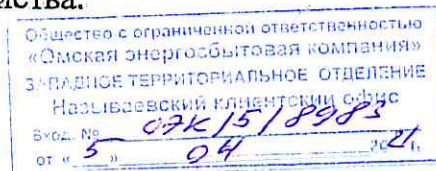 йства.
Общество с ограниченной ответственностью
«Омская энергосбытовая компания»
ЗАПАДНОЕ ТЕРРИТОРИАЛЬНОЕ ОТДЕЛЕНИЕ
Называевский клиентский офис
Вход. № ОЭК/5/8983
от « 5 » 04 2021 г.